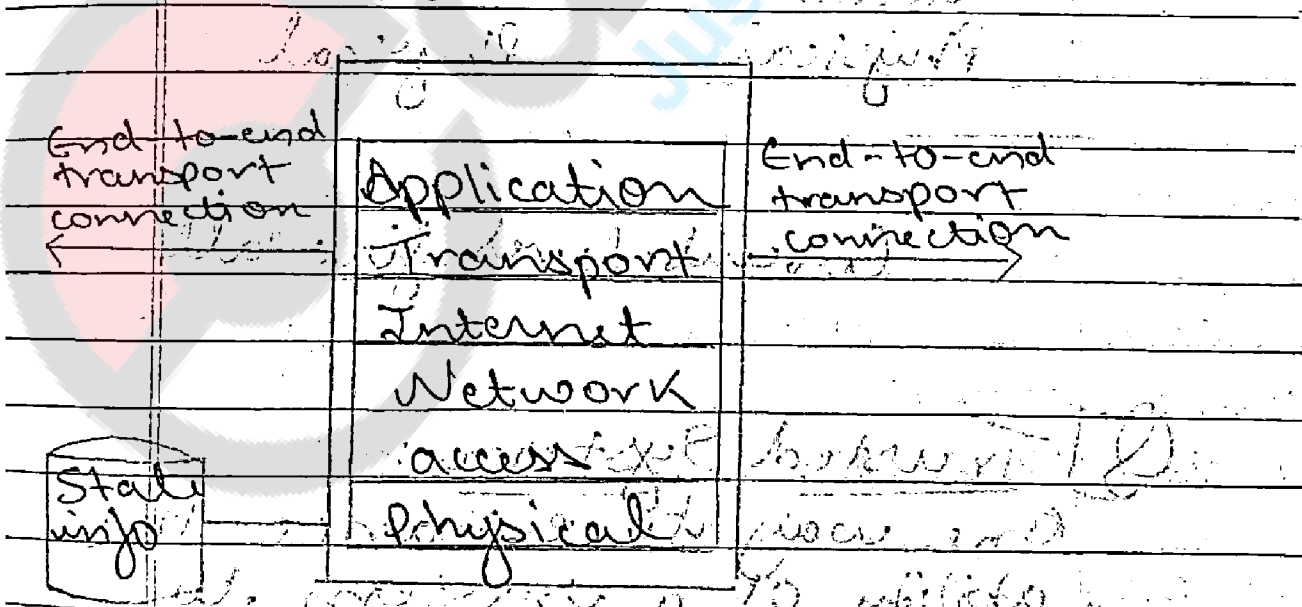 End-to-end
transport
connection
Application
Transport
Internet
Network
access
Physical
End-to-end
transport
connection
State
info